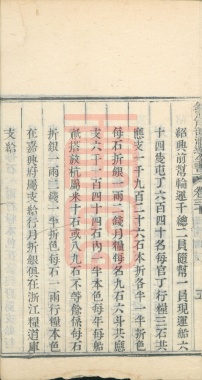 紹興前幫輪運千總二員隨幫一員現運船六
十四隻屯丁六百四十名每官丁行糧三石共
應支一千九百二十六石本折各半一半折色
每石折銀一兩二錢月糧每名九石六斗共應
支六千一百四十四石內一半本色每年每船
派搭該杭屬米千石或八九石不等餘係每石
折銀一兩二錢一半折色每石一兩行糧本色
在嘉興府屬支給行月折銀俱在浙江糧道庫
支給